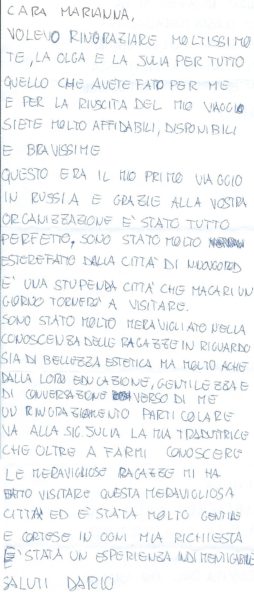 CARA MARIANNA,
VOLEVO RINGRAZIARE MOLTISSIMO
TE, LA OLGA E LA JULIA PER TUTTO
QUELLO CHE AVETE FATO PER ME
E PER LA RIUSCITA DEL MIO VIAGGIO
SIETE MOLTO AFFIDABILI, DISPONIBILI
E BRAVISSIME
QUESTO ERA IL MIO PRIMO VIAGGIO
IN RUSSIA E GRAZIE ALLA VOSTRA
ORGANIZZAZIONE E' STATO TUTTO
PERFETTO, SONO STATO MOLTO
ESTEREFATO DALLA CITTA' DI
E' UNA STUPENDA CITTA' CHE MAGARI UN
GIORNO TORNERO' A VISITARE.
SONO STATO MOLTO MERAVIGLIATO NELLA
CONOSCENZA DELLE RAGAZZE IN RIGUARDO
SIA DI BELLEZZA ESTETICA MA MOLTO ACHE
DALLA LORO EDUCAZIONE, GENTILEZZA E
DI CONVERSAZIONE VERSO DI ME
UN RINGRAZIAMENTO PARTICOLARE
VA ALLA SIG. JULIA LA MIA TRADUTTRICE
CHE OLTRE A FARMI CONOSCERE
LE MERAVIGLIOSE RAGAZZE MI HA
FATTO VISITARE QUESTA MERAVIGLIOSA
CITTA' ED E' STATA MOLTO GENTILE
E CORTESE IN OGNI MIA RICHIESTA
E' STATA UN ESPERIENZA INDIMENTICABILE
SALUTI DARIO